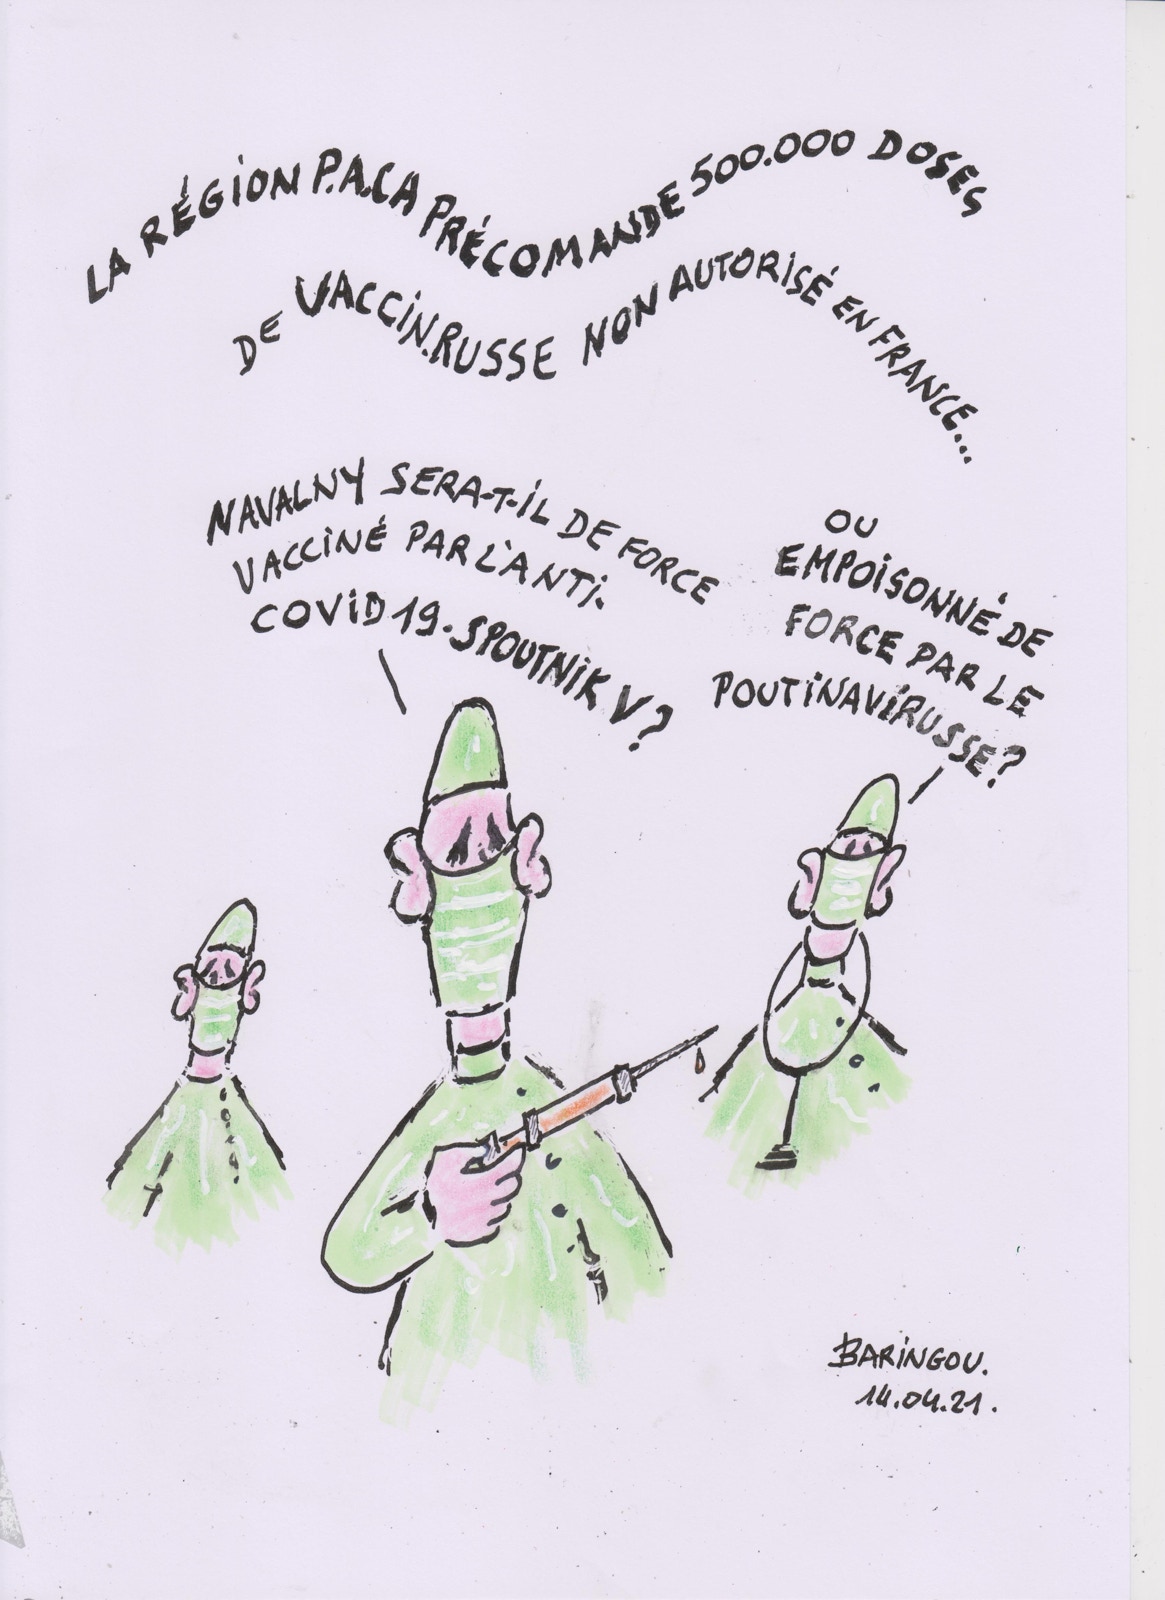 LA RÉGION P.A.C.A PRÉCOMANDE 500.000 DOSES
DE VACCIN.RUSSE NON AUTORISÉ EN FRANCE...
NAVALNY SERA-T-IL DE FORCE
VACCINÉ PAR L'ANTI.
COVID 19. SPOUTNIK V?
OU
EMPOISONNÉ DE
FORCE PAR LE
POUTINAVIRUSSE?
BARINGOU.
14.04.21.